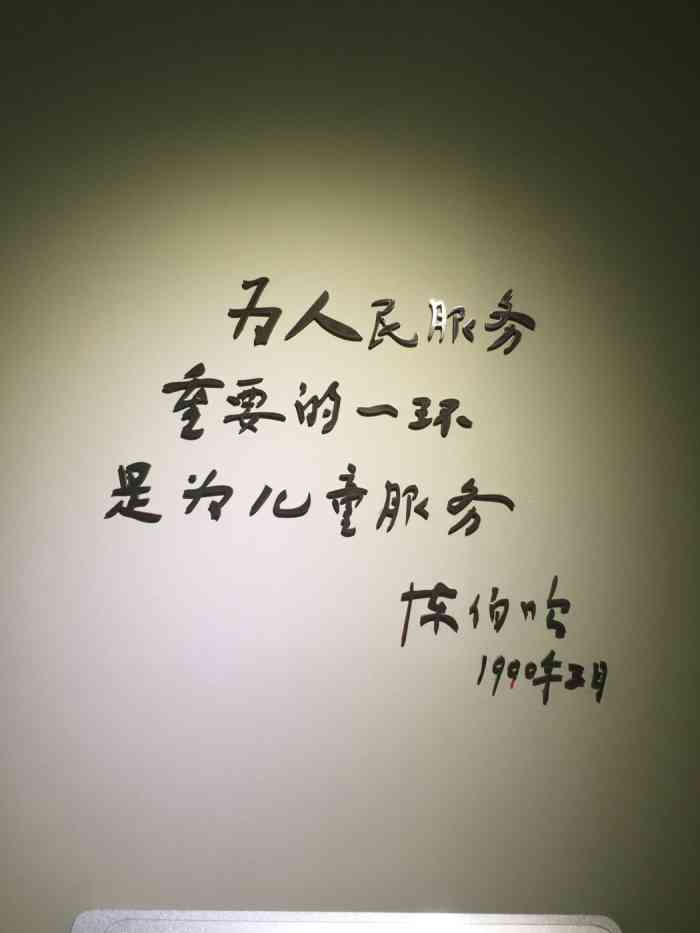 为人民服务
重要的一环
是为儿童服务
陈伯吹
1990年五月